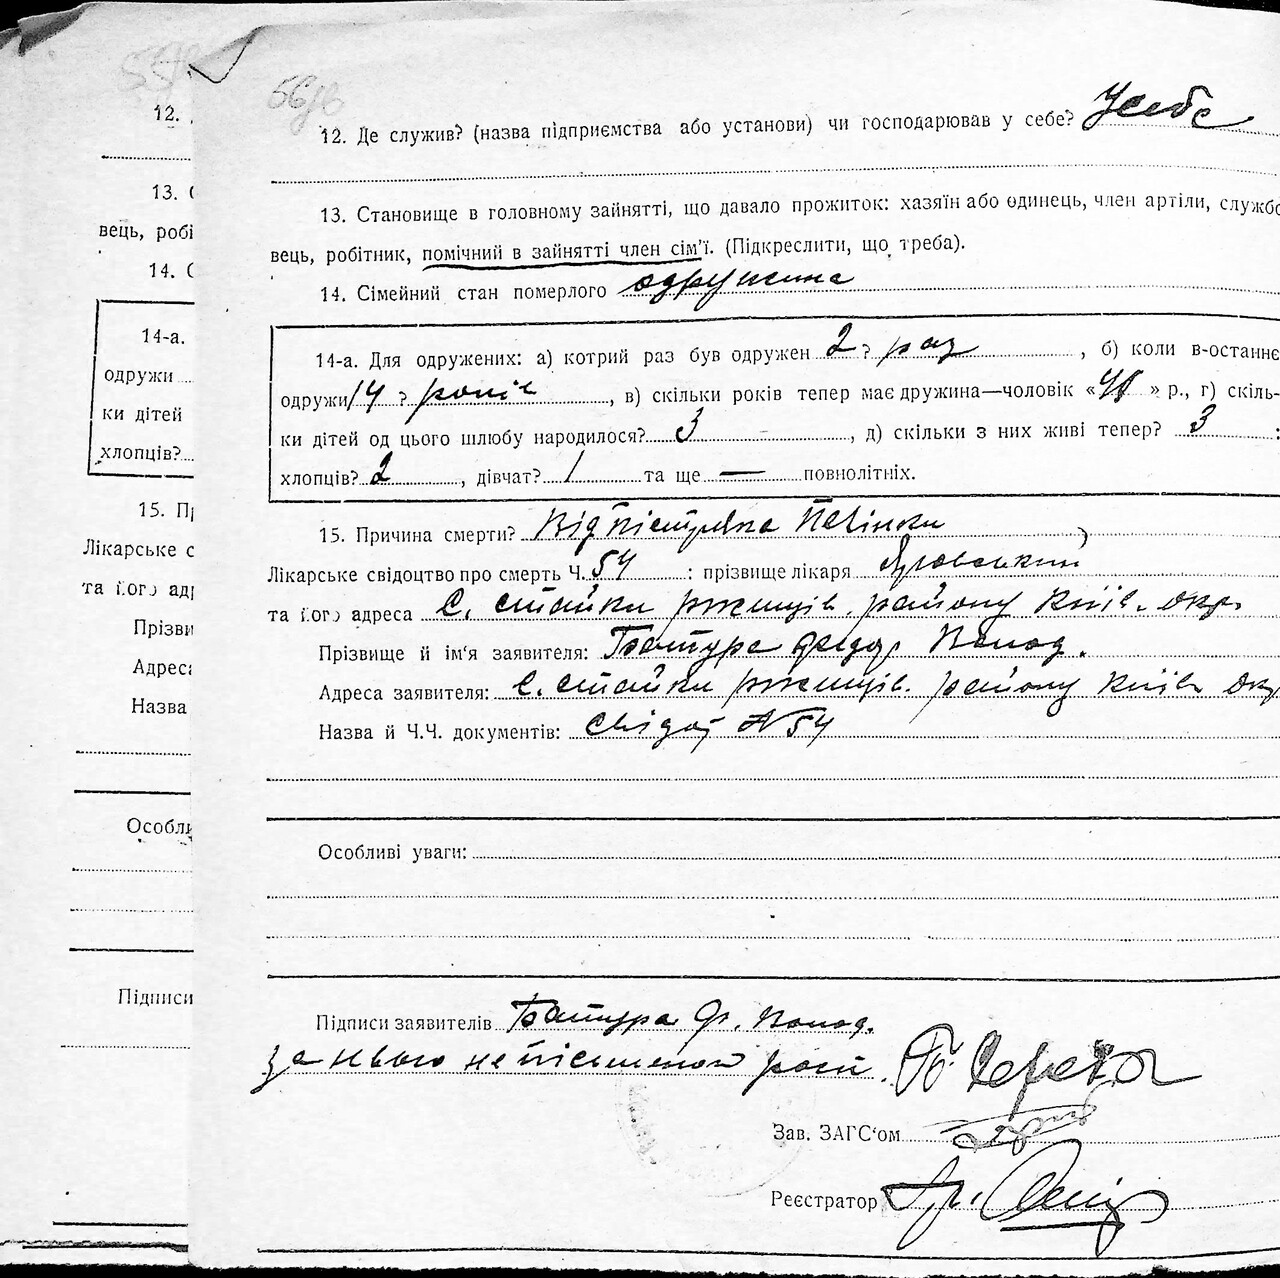 56
12. Де служив? (назва підприємства або установи) чи господарював у себе? У себе
13. Становище в головному зайнятті, що давало прожиток: хазяїн або одинець, член артіли, службо-
вець, робітник, помічний в зайнятті член сім'ї. (Підкреслити, що треба).
14. Сімейний стан померлого одружена
14-а. Для одружених: а) котрий раз був одружен 2? раз, б) коли в-останнє
одружи 14? років, в) скільки років тепер має дружина—чоловік « » р., г) скіль-
ки дітей од цього шлюбу народилося? 3, д) скільки з них живі тепер? 3 :
хлопців? 2, дівчат? 1 та ще — повнолітніх.
15. Причина смерти? Від печінки
Лікарське свідоцтво про смерть Ч. 54 : прізвище лікаря
та його адреса С. Стайки ржищів. району Київ. окр.
Прізвище й ім'я заявителя: Батура Федор
Адреса заявителя: С. Стайки ржищів. району Київ окр
Назва й Ч.Ч. документів: Свідоц № 54
Особливі уваги:
Підписи заявителів Батура Ф.
за нього неписьменого росп.
Зав. ЗАГС'ом
Реєстратор
12.
13.
вець, робі
14.
14-а.
одружи
ки дітей
хлопців?
15. Пр
Лікарське с
та його адр
Прізви
Адреса
Назва
Особли
Підписи